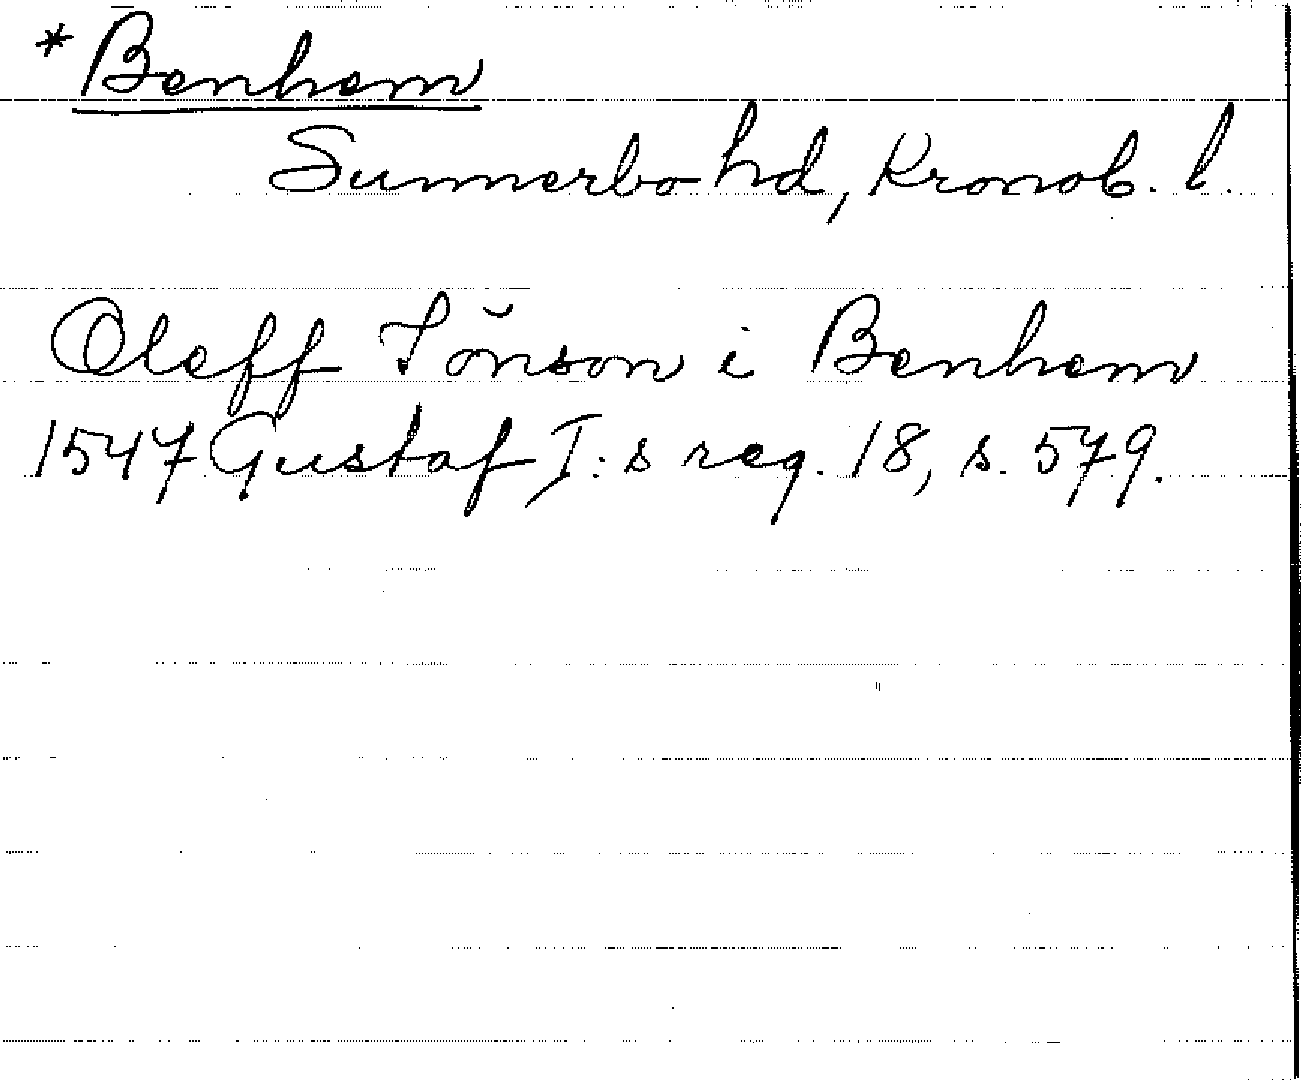 * Benhem
Sunnerbo hd, Kronob. l.
Oleff Jönson i Benhem
1547 Gustaf I:s reg. 18, s. 579.